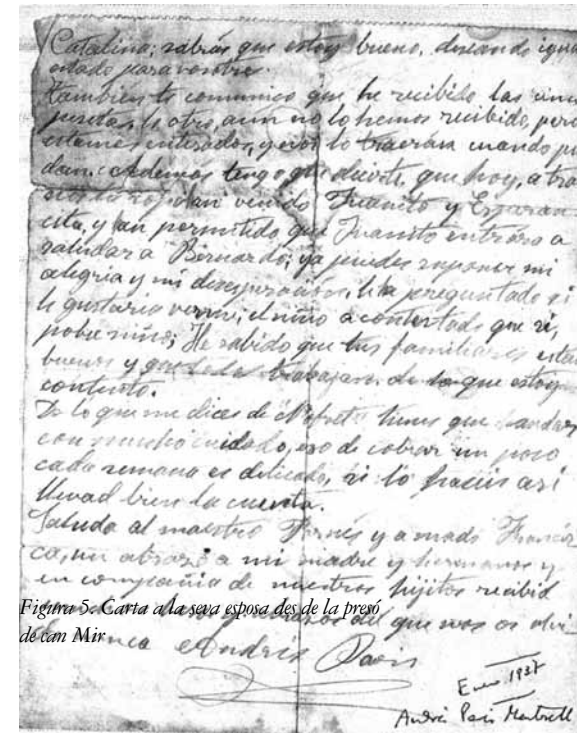 Catalina; sabrás que estoy bueno, deseando igual
estado para vosotros.
tambien te comunico que he recibido las cinco
pesetas, lo otro, aun no lo hemos recibido, pero
estamos enterados, y nos lo traerán cuando pue
dan. Ademas tengo que decirte, que hoy, a tra
la ropa han venido Juanito y Esperan
cita, y han permitido que Juanito entrara a
saludar a Bernardo; ya puedes suponer mi
alegria y mi desesperación, le ha preguntado si
le gustaria verme, el niño a contestado que si,
pobre niño; He sabido que tus familiares estan
buenos y que trabajan, de lo que estoy
contento.
De lo que me dices de tienes que andar
con mucho cuidado, eso de cobrar un poco
cada semana es delicado, si lo haceis así
llevad bien la cuenta.
Saluda al maestro Fornés y a madò Francis
ca, un abrazo a mi madre y hermanos y
en compañia de nuestros hijitos recibid
del que nos os olvi
Andres Paris
Figura 5. Carta a la seva esposa des de la presó
de can Mir
Enero 1937
Andrés Paris